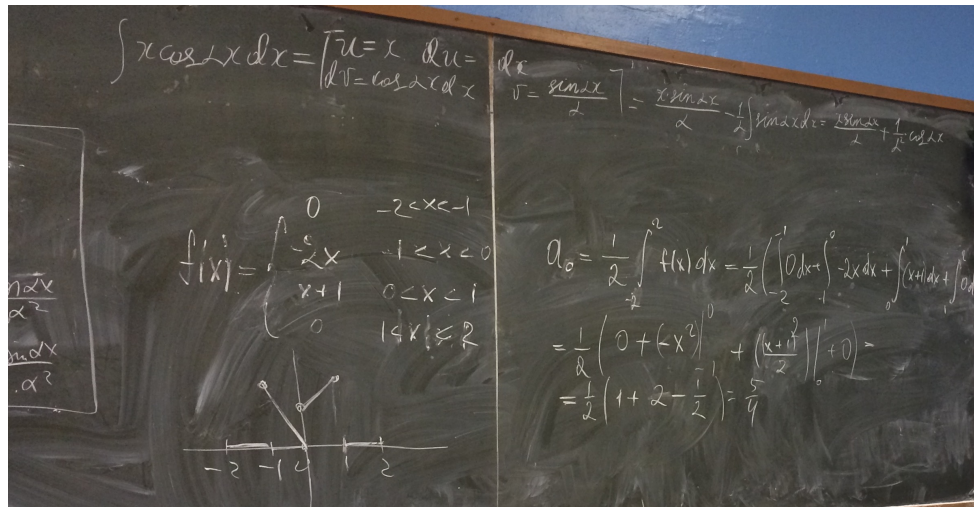 ∫ x cos αx dx = [u = x du = dx
dv = cos αx dx v = sin αx / α] = x sin αx / α - 1/α ∫ sin αx dx = x sin αx / α + 1/α² cos αx
sin αx / α²
sin αx / α²
f(x) = {
0 -2<x<-1
-2x -1<x<0
x+1 0<x<1
0 1<x<2
-2 -1 0 1 2
a₀ = 1/2 ∫₋₂² f(x) dx = 1/2 ( ∫₋₂⁻¹ 0 dx + ∫₋₁⁰ -2x dx + ∫₀¹ (x+1) dx + ∫₁² 0 d
= 1/2 ( 0 + (-x²)|₋₁⁰ + ((x+1)²/2)|₀¹ + 0 ) =
= 1/2 ( 1 + 2 - 1/2 ) = 5/4